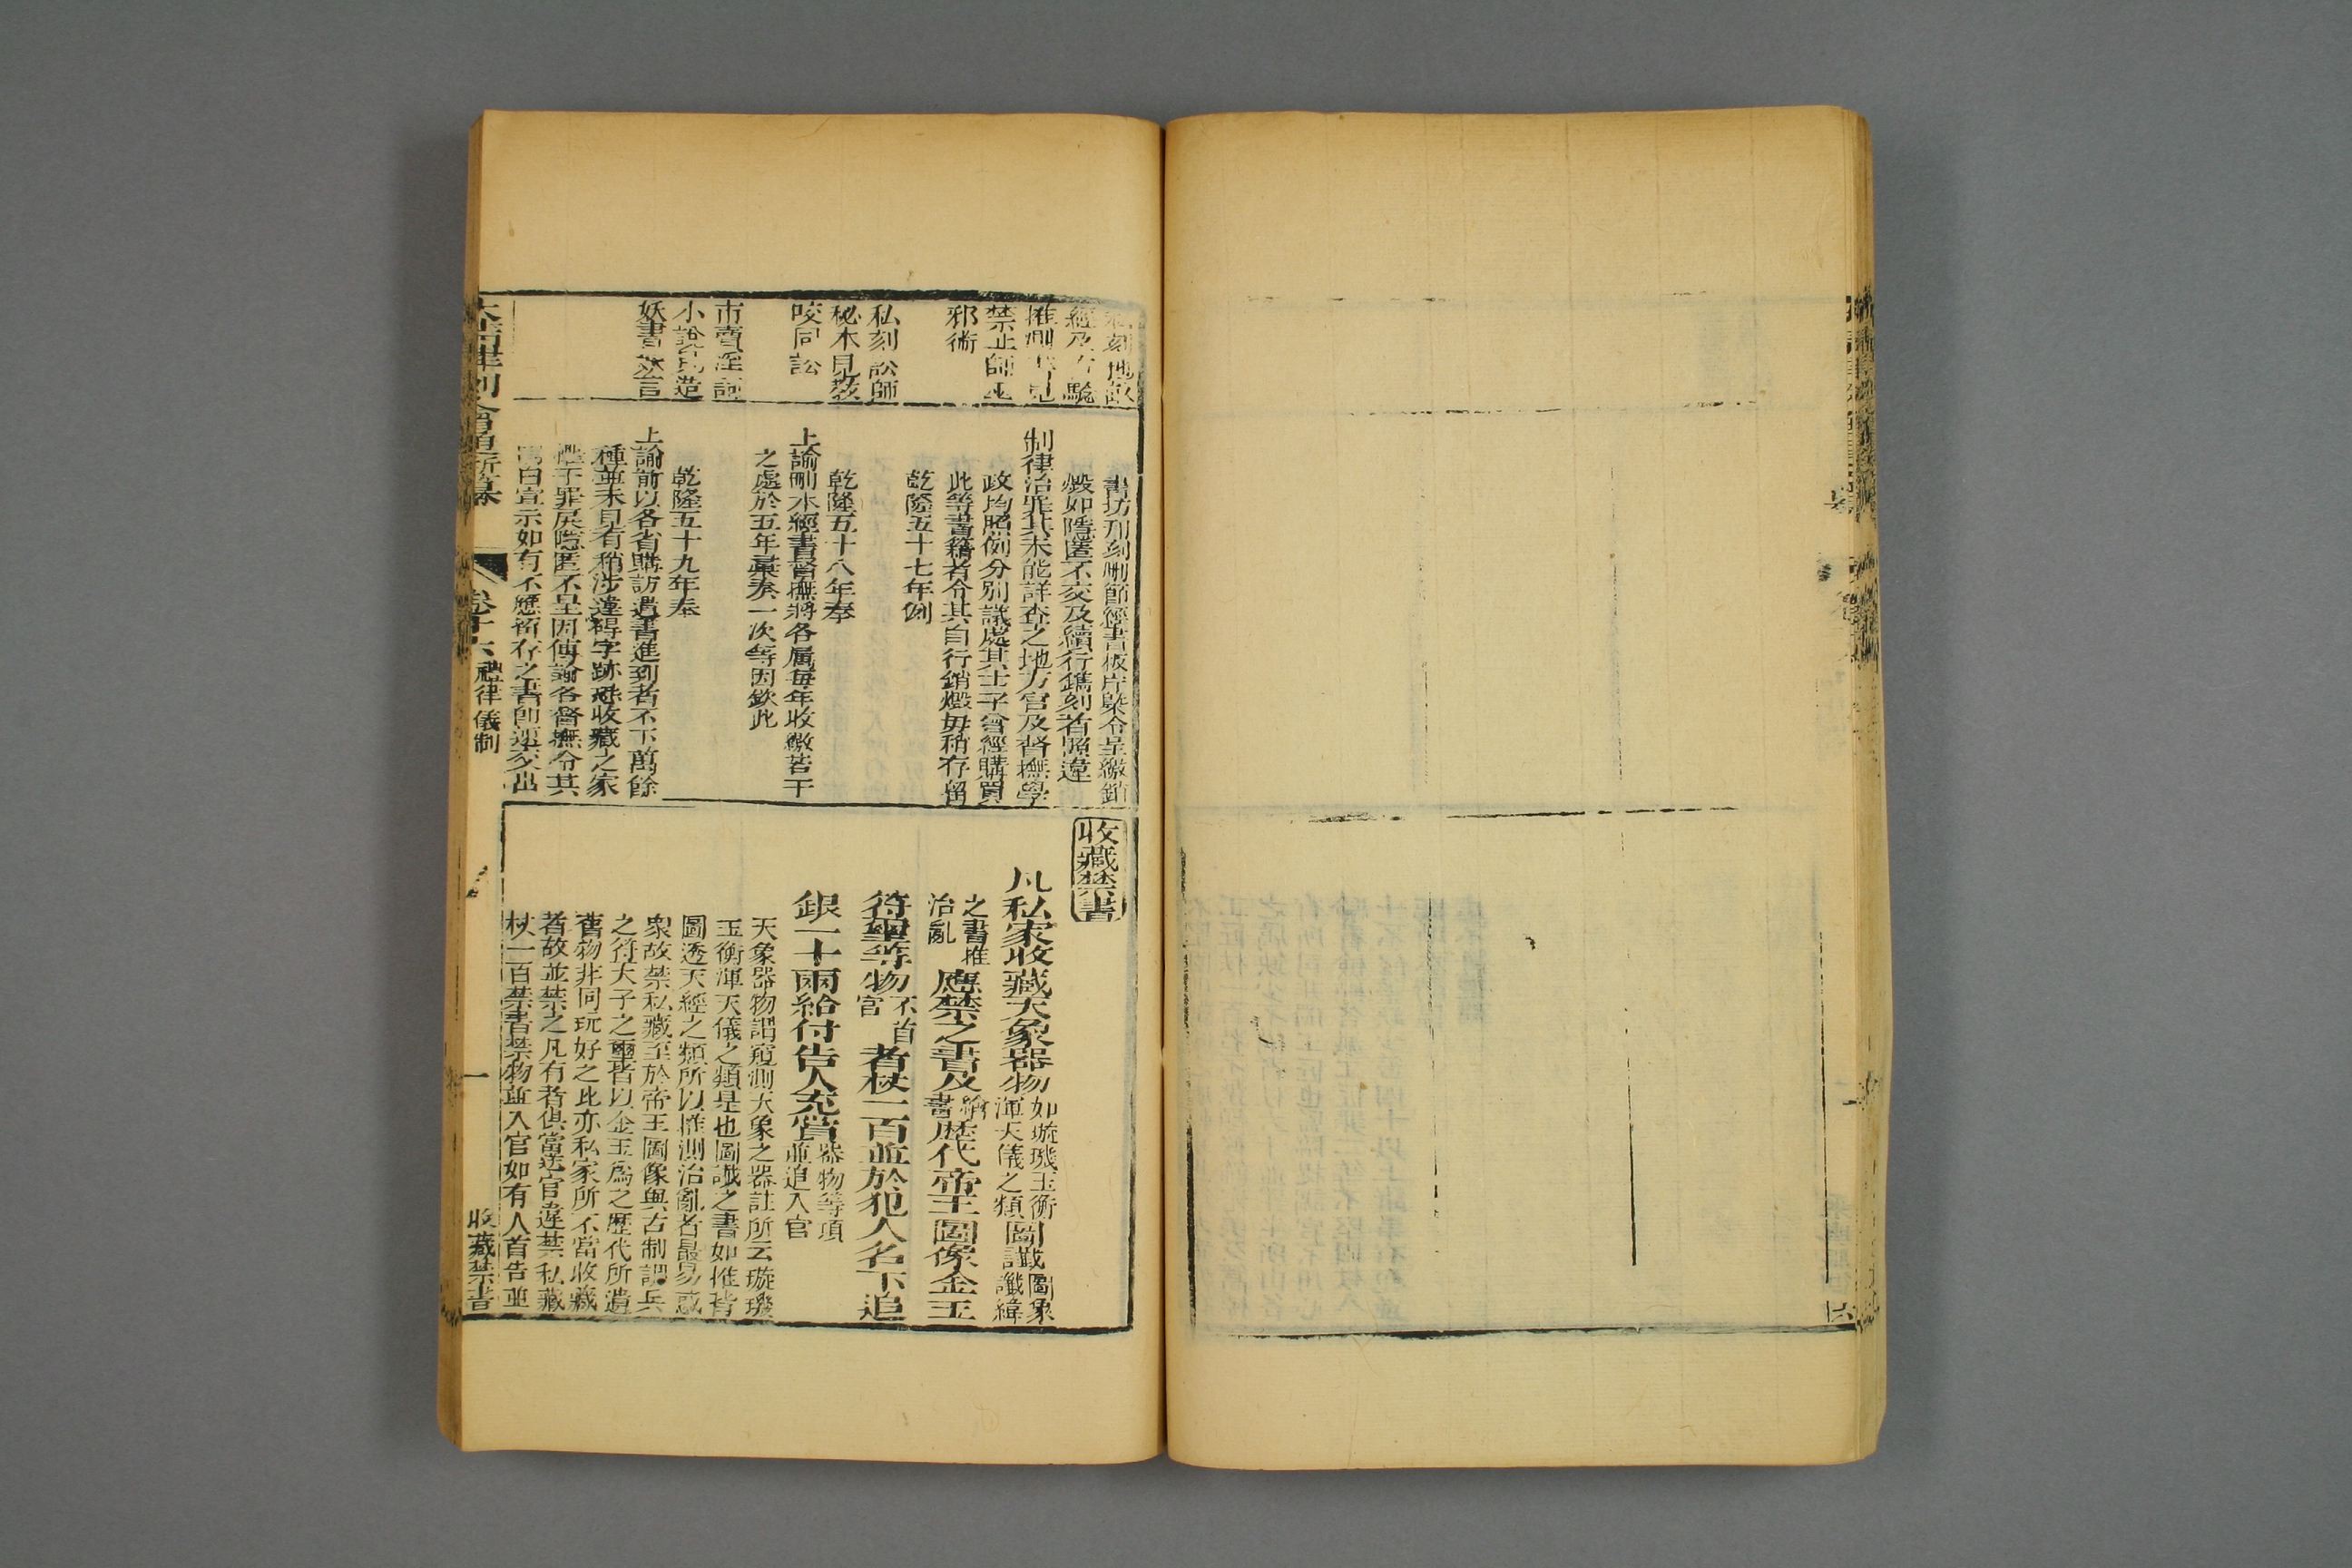 禁止師巫
邪術
私刻訟師
秘本見教
咬同訟
市賣淫詞
小說
妖書妖言
書坊刊刻刪節經書板片槩令呈繳銷
燬如隱匿不交及續行鐫刻者照違
制律治罪其未能詳查之地方官及督撫學
政均照例分別議處其士子曾經購買
此等書籍者令其自行銷燬毋稍存留
乾隆五十七年例
乾隆五十八年奉
上諭刪本經書督撫將各屬每年收繳若干
之處於五年彙奏一次等因欽此
乾隆五十九年奉
上諭前以各省購訪遺書進到者不下萬餘
種並未見有稍涉違碍字跡恐收藏之家
懼干罪戾隱匿不呈因傳諭各督撫令其
明白宣示如有不應留存之書即速交出
收藏禁書
凡私家收藏天象器物如璇璣玉衡渾天儀之類圖讖圖象讖緯
之書推治亂應禁之書及繪書歷代帝王圖像金玉
符璽等物不首官者杖一百並於犯人名下追
銀一十兩給付告人充賞器物等項並追入官
天象器物謂窺測天象之器註所云璇璣
玉衡渾天儀之類是也圖讖之書如推背
圖透天經之類所以推測治亂者最易惑
衆故禁私藏至於帝王圖像與古制調兵
之符天子之璽皆以金玉爲之歷代所遺
舊物非同玩好之比亦私家所不當收藏
者故並禁之凡有者俱當送官違禁私藏
杖一百禁書禁物並入官如有人首告並
大清律例會通新纂
卷十六
禮律儀制
一
收藏禁書
六